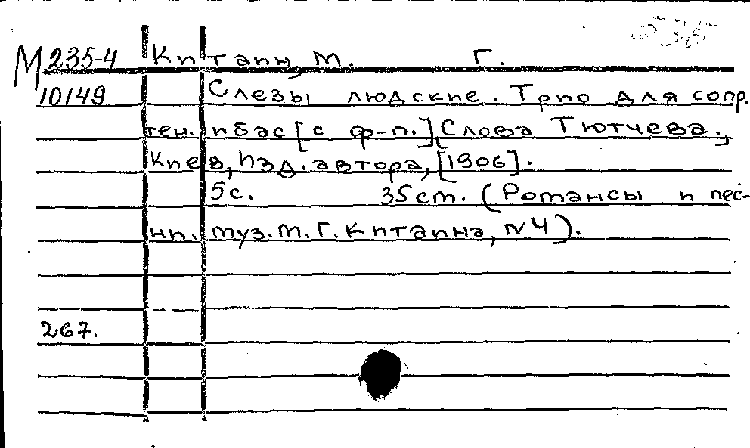 М 235-4 Китаин, М. Г.
10149 Слезы людские. Трио для сопр.
тен. и бас [с ф-п.] Слова Тютчева.,
Киев, Изд. автора, [1906].
5с. 35cm. (Романсы и пес-
ни. муз. М. Г. Китаина, №4).
267.